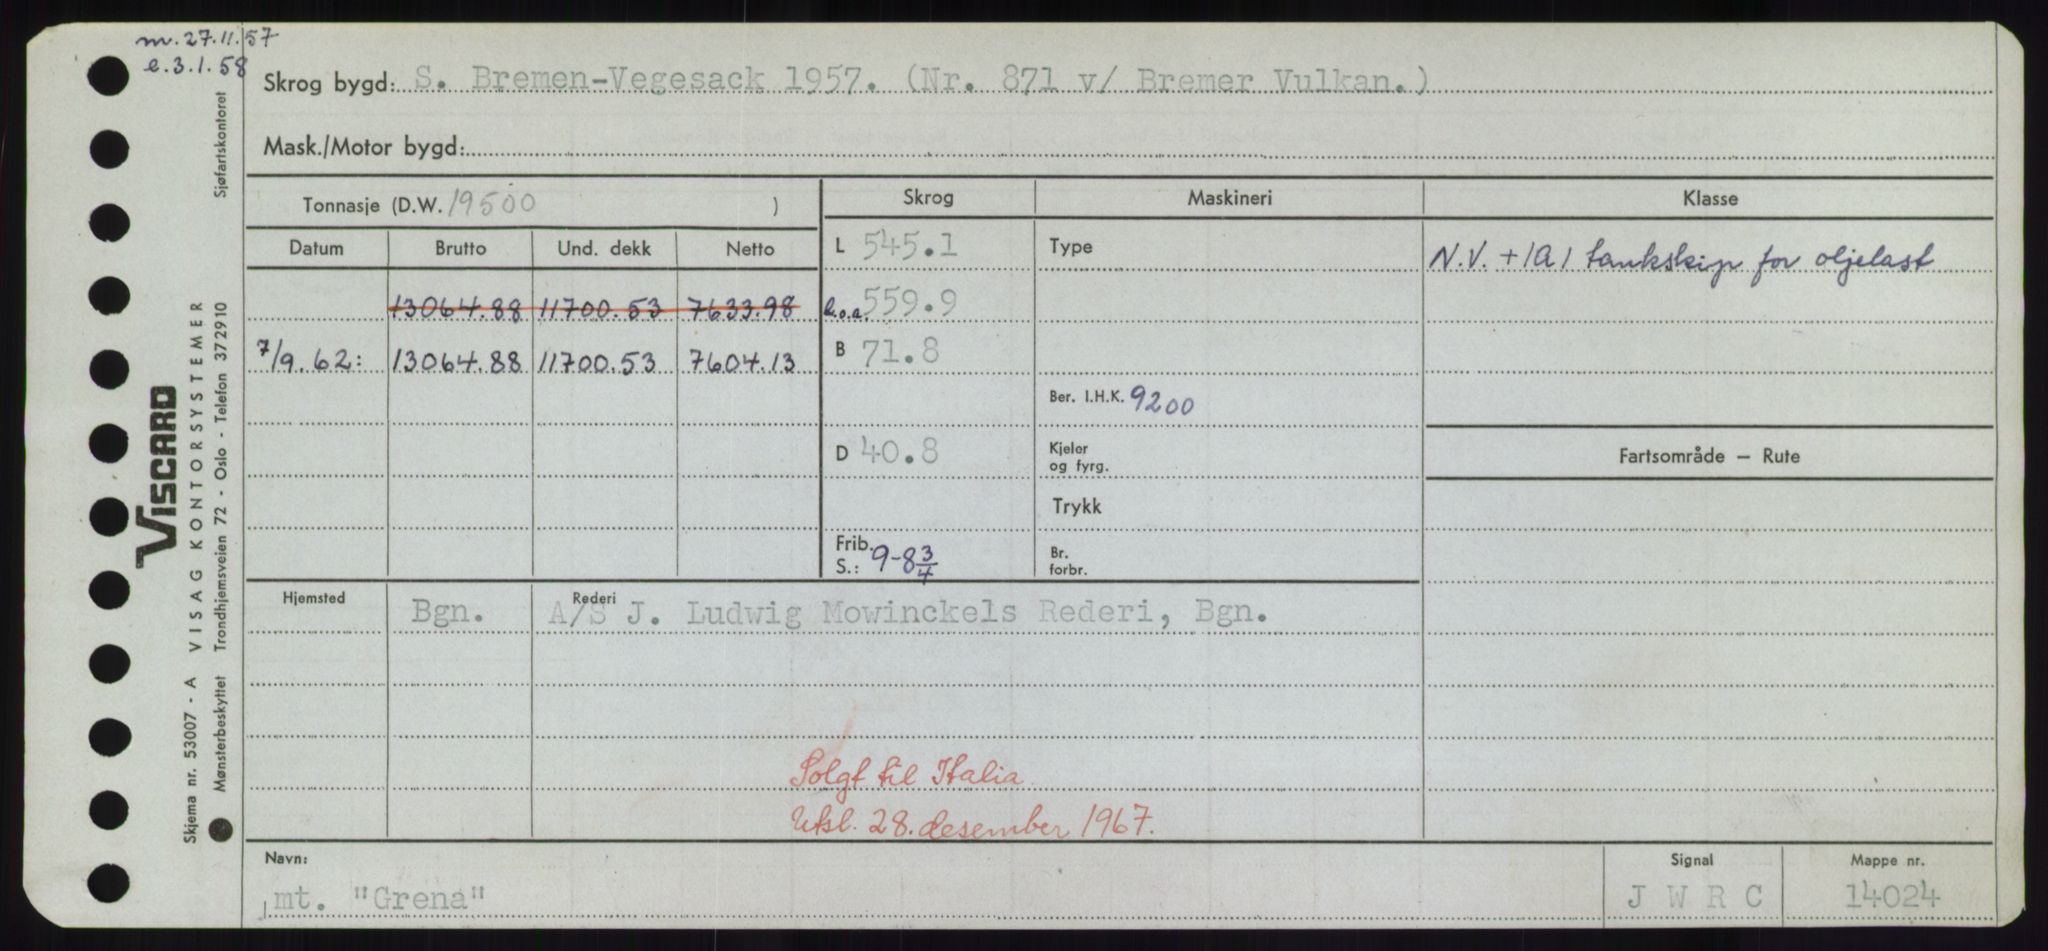 m. 27.11.57
e. 3.1.58
Skrog bygd: S. Bremen-Vegesack 1957. (Nr. 871 v/ Bremer Vulkan.)
Mask./Motor bygd:
Tonnasje (D.W. 19500 )
Datum Brutto Und. dekk Netto
13064.88 11700.53 7633.98
7/9.62: 13064.88 11700.53 7604.13
Skrog
L 545.1
l.o.a. 559.9
B 71.8
D 40.8
Frib. S.: 9-8 3/4
Maskineri
Type
Ber. I.H.K. 9200
Kjeler
og fyrg.
Trykk
Br.
forbr.
Klasse
N.V. +1A1 tankskip for oljelast
Fartsområde — Rute
Hjemsted Rederi
Bgn. A/S J. Ludwig Mowinckels Rederi, Bgn.
Solgt til Italia
Utsl. 28. desember 1967.
Navn: Signal Mappe nr.
mt. "Grena" J W R C 14024
Skjema nr. 53007 - A VISAG KONTORSYSTEMER
Mønsterbeskyttet Trondhjemsveien 72 - Oslo - Telefon 372910 Sjøfartskontoret
VISCARD